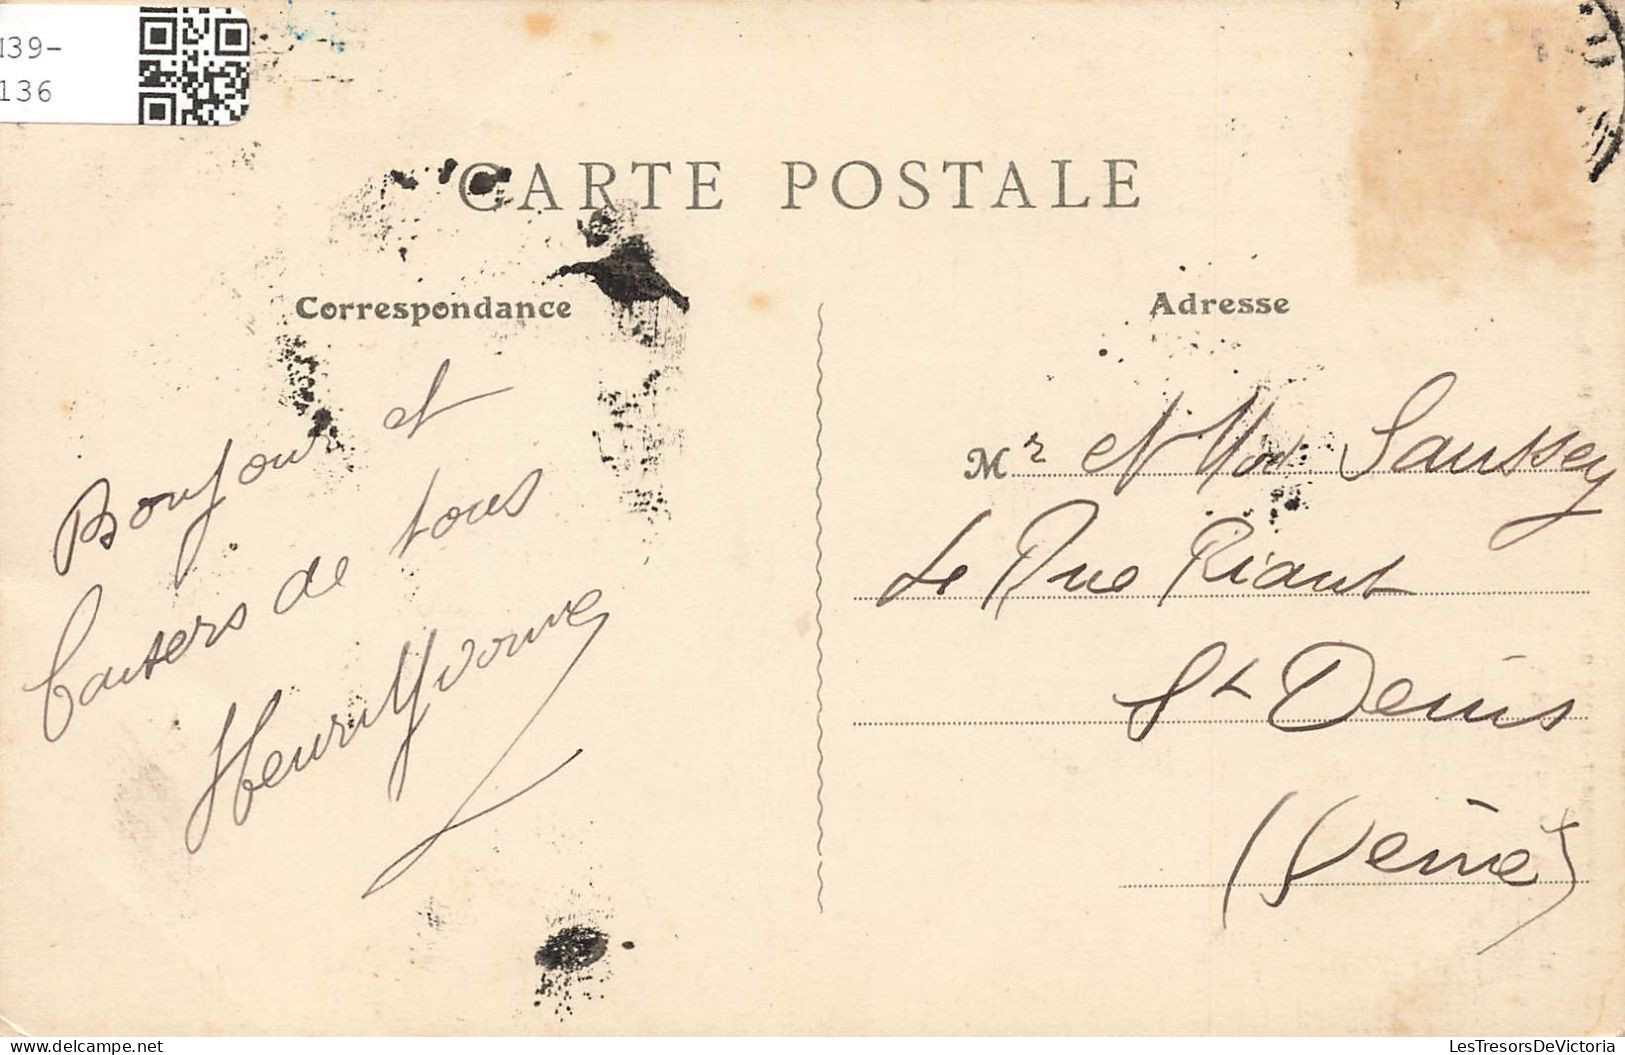 M39-
136
CARTE POSTALE
Correspondance
Adresse
Bonjour et
baisers de tous
Henri Yvonne
Mr et Mme Saussey
Rue Riant
St Denis
(Seine)
LesTresorsDeVictoria